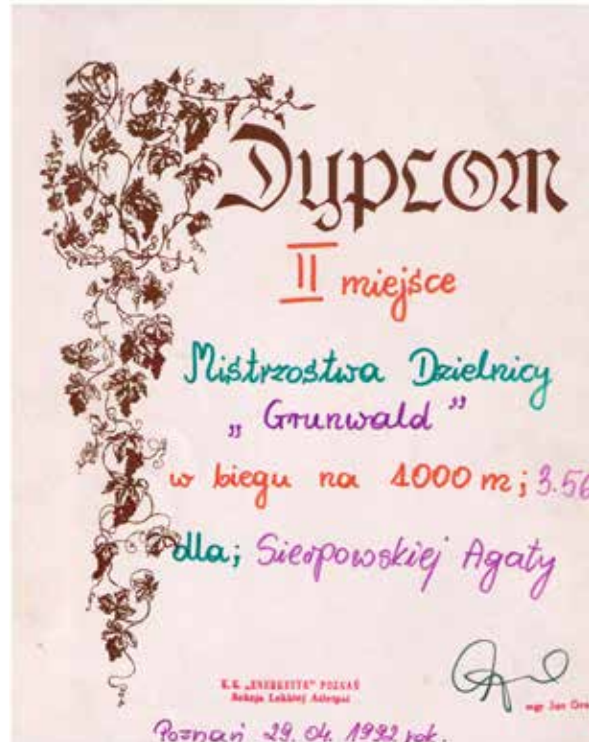 Dyplom
II miejsce
Mistrzostwa Dzielnicy
„Grunwald”
w biegu na 1000 m; 3.56
dla; Sierpowskiej Agaty
K.S. „ENERGETYK” POZNAŃ
Sekcja Lekkiej Atletyki
mgr Jan
Poznań 29.04.1992 rok.